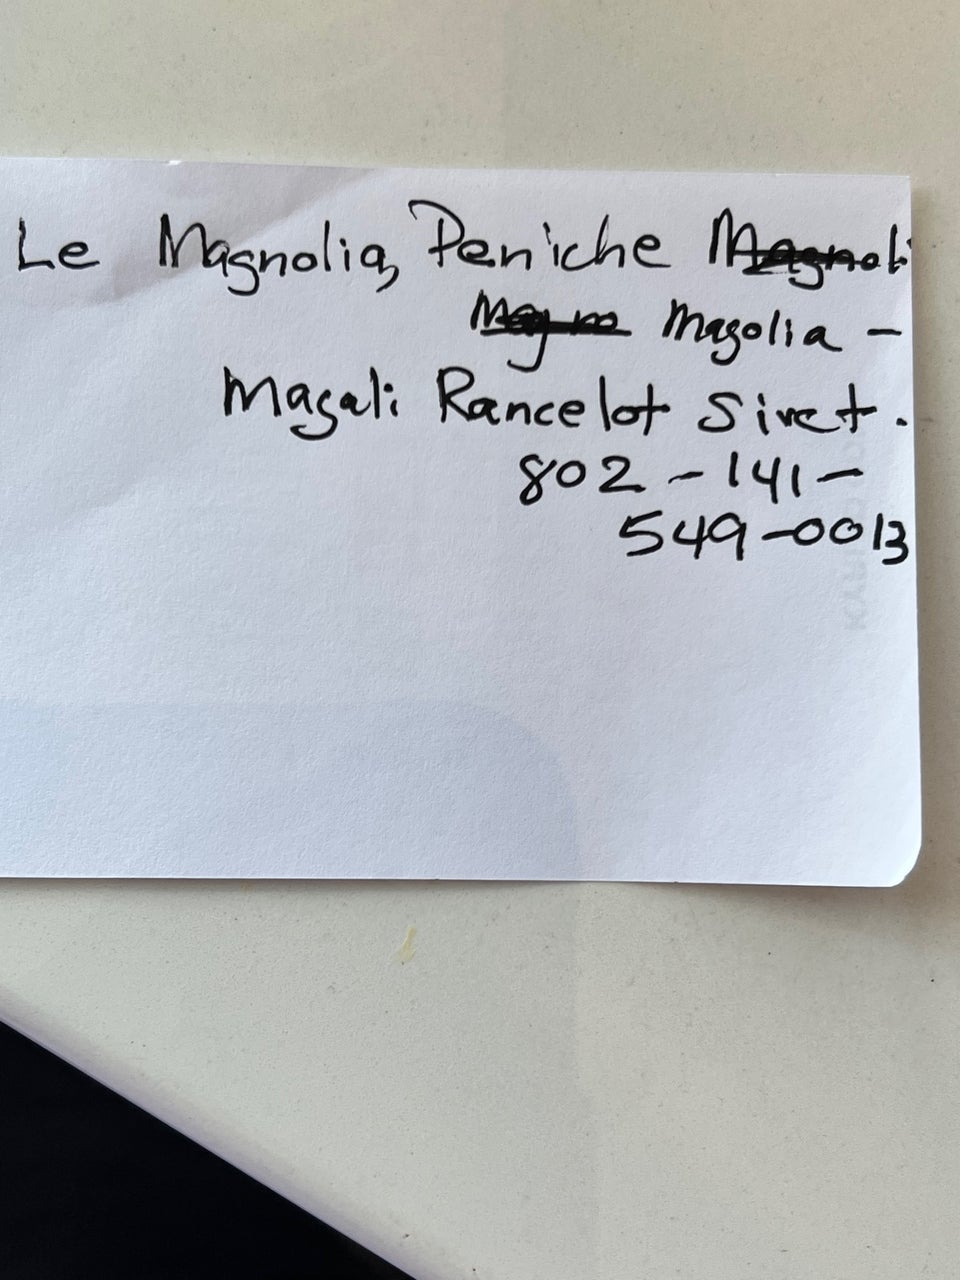 Le Magnolia, Peniche Magnoli
Magno Magolia -
Magali Rancelot Siret.
802 - 141 -
549-0013